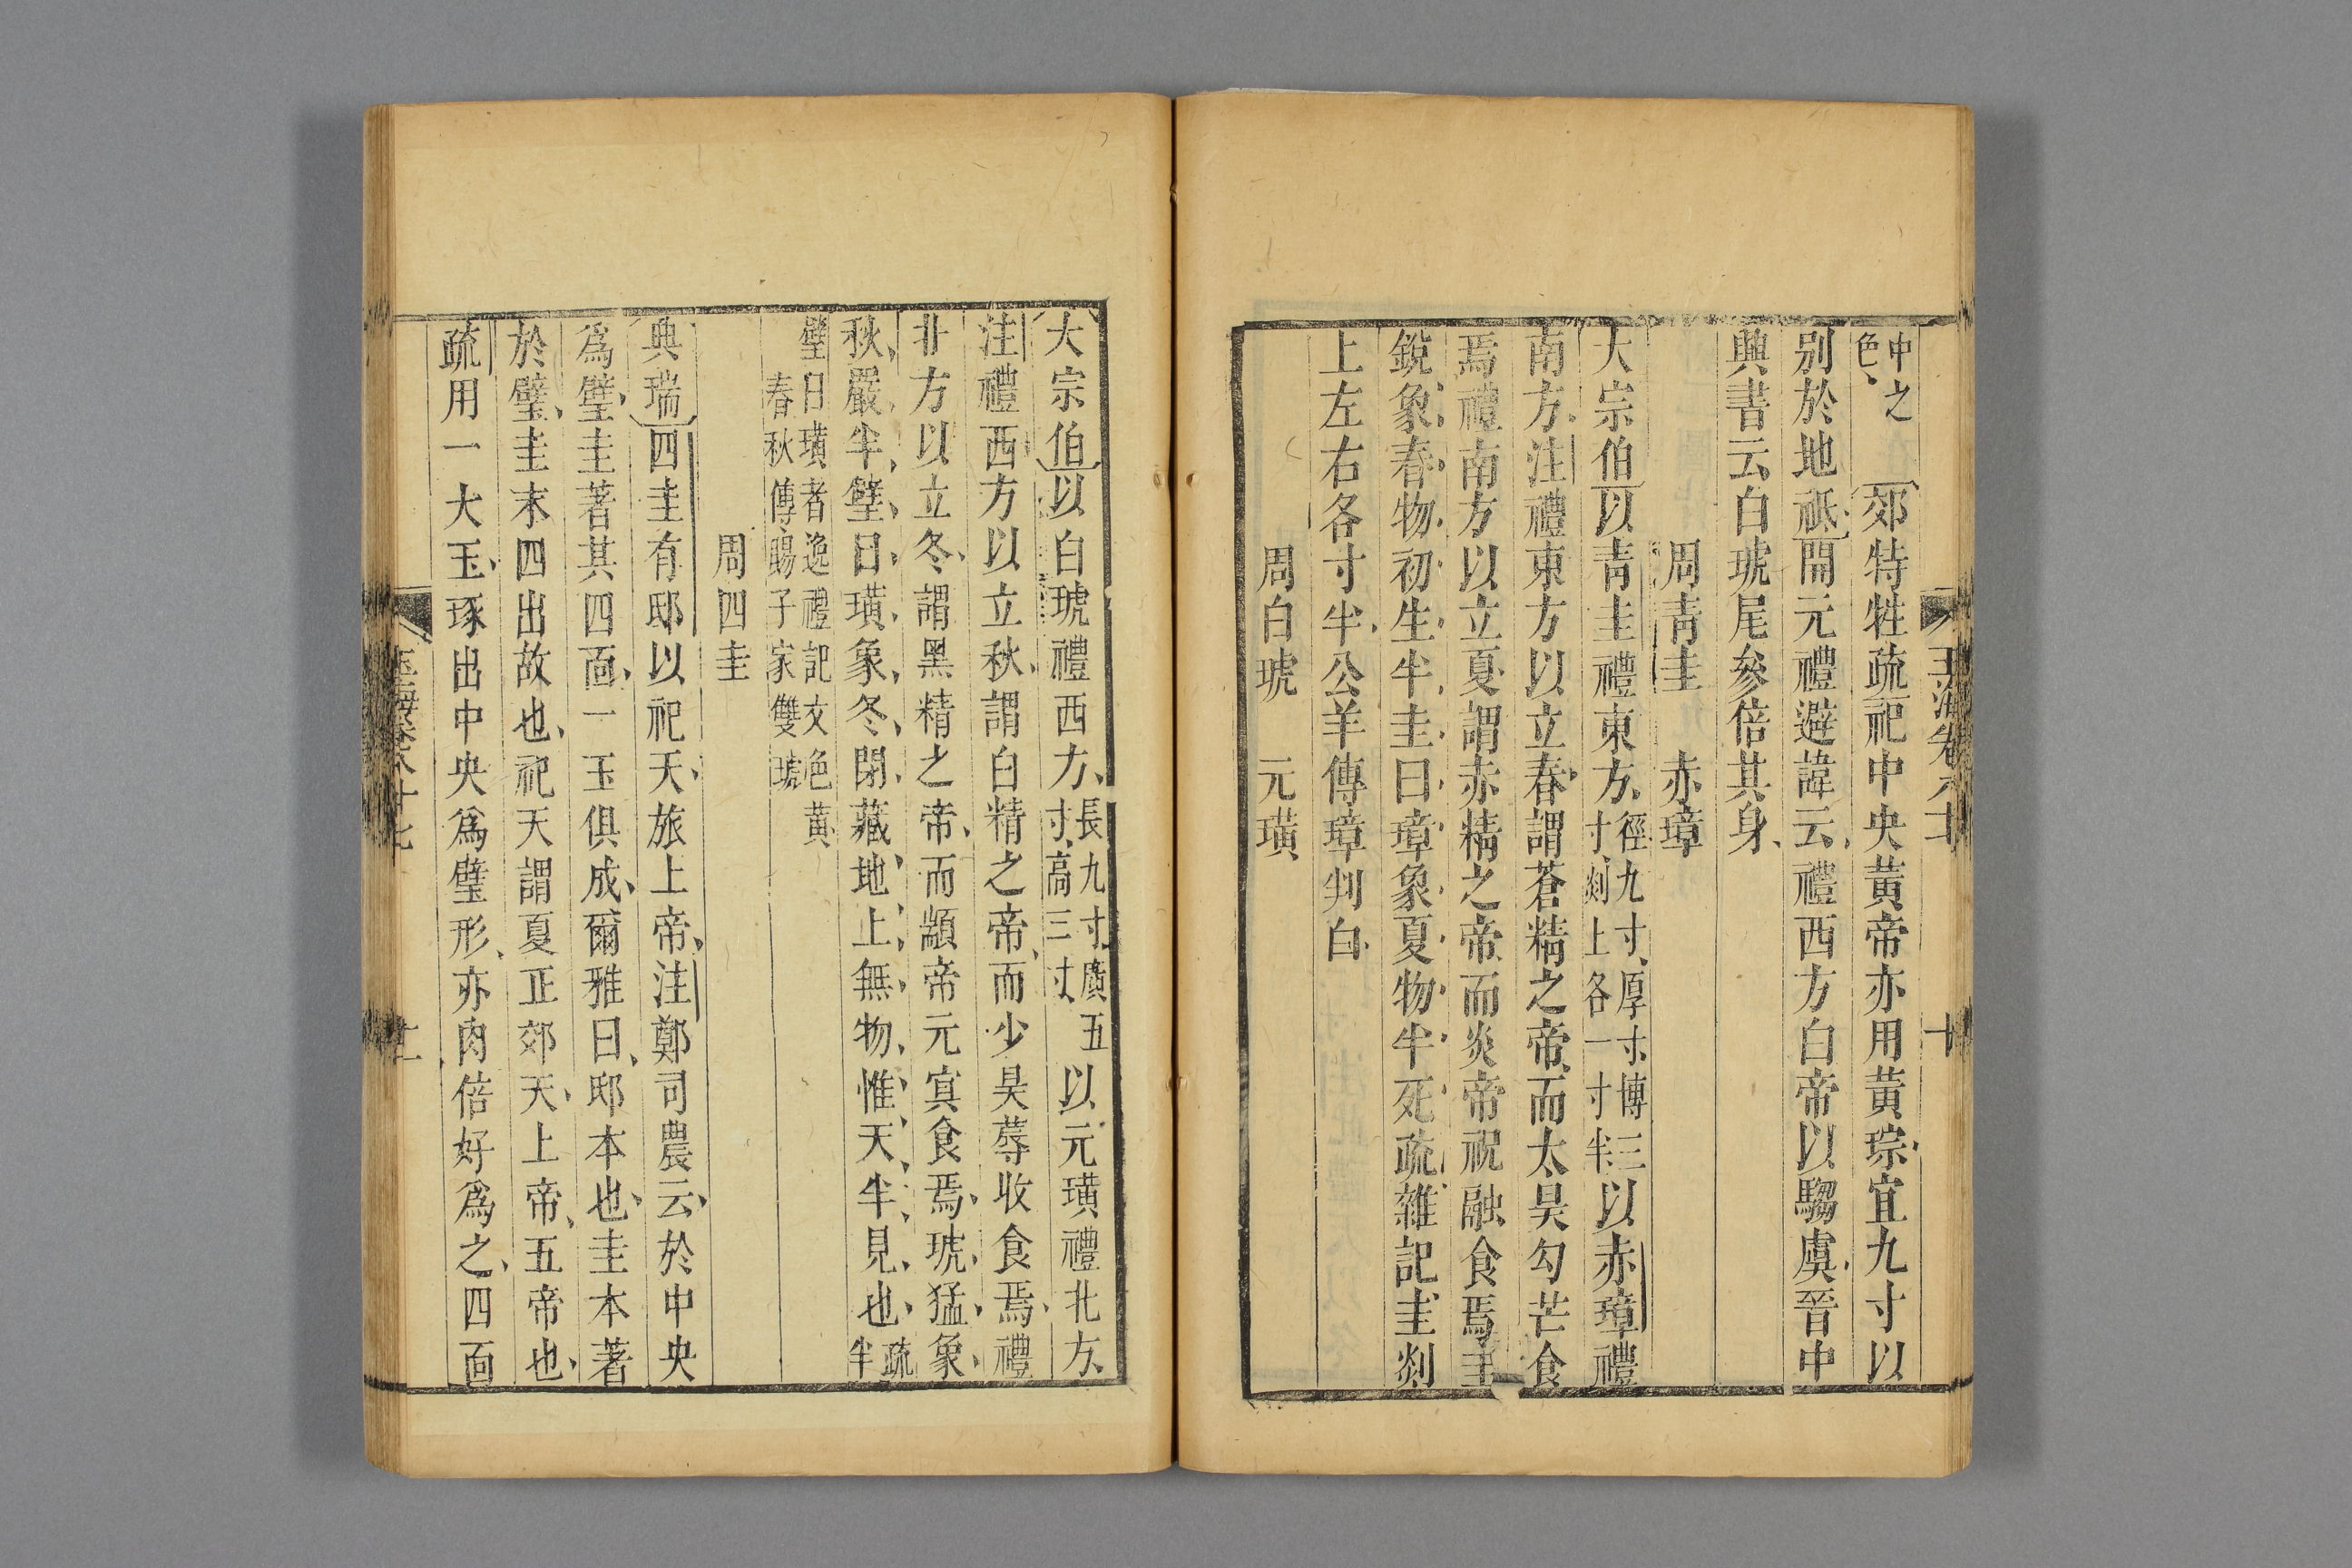 玉海卷六十 十
中之色郊特牲疏祀中央黃帝亦用黃琮宜九寸以
別於地祇開元禮避諱云禮西方白帝以騶虞晉中
興書云白琥尾參倍其身
周靑圭 赤璋
大宗伯以靑圭禮東方徑九寸厚寸博三寸剡上各一寸半以赤璋禮
南方注禮東方以立春謂蒼精之帝而太昊勾芒食
焉禮南方以立夏謂赤精之帝而炎帝祝融食焉圭
銳象春物初生半圭曰璋象夏物半死疏雜記圭剡
上左右各寸半公羊傳璋判白
周白琥 元璜
大宗伯以白琥禮西方長九寸廣五寸高三寸以元璜禮北方
注禮西方以立秋謂白精之帝而少昊蓐收食焉禮
北方以立冬謂黑精之帝而顓帝元冥食焉琥猛象
秋嚴半璧曰璜象冬閉藏地上無物惟天半見也疏半
璧曰璜者逸禮記文色黃春秋傳賜子家雙琥
周四圭
典瑞四圭有邸以祀天旅上帝注鄭司農云於中央
爲璧圭著其四面一玉俱成爾雅曰邸本也圭本著
於璧圭末四出故也祀天謂夏正郊天上帝五帝也
疏用一大玉琢出中央爲璧形亦肉倍好爲之四面